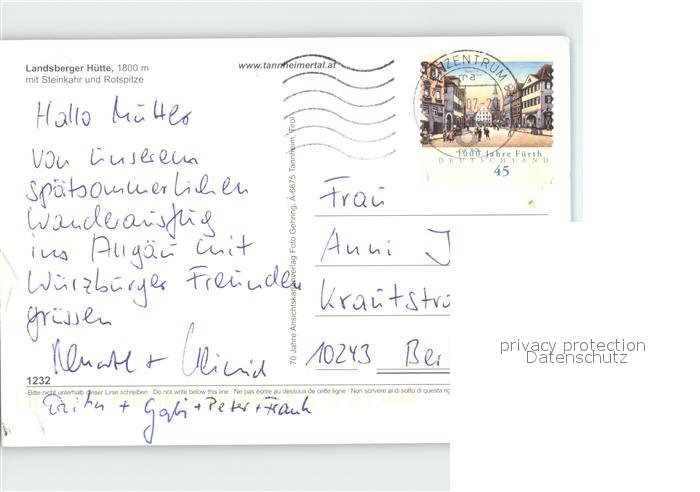 Landsberger Hütte, 1800 m
mit Steinkahr und Rotspitze
www.tannheimertal.at
Hallo Mutter
von unserem
spätsommerlichen
Wanderausflug
ins Allgäu mit
Würzburger Freunden
grüssen
Renate +
1232
Bitte nicht unterhalb dieser Linie schreiben · Do not write below this line · Ne pas écrire au dessous de cette ligne · Non scrivere al di sotto di questa rig
+ Gabi + Peter + Frank
70 Jahre Ansichtskartenverlag Foto Gehring, A-6675 Tannheim, Tirol
ZENTRUM
1000 Jahre Fürth
DEUTSCHLAND
45
Frau
Anni J
Krautstr
10243 Ber
privacy protection
Datenschutz